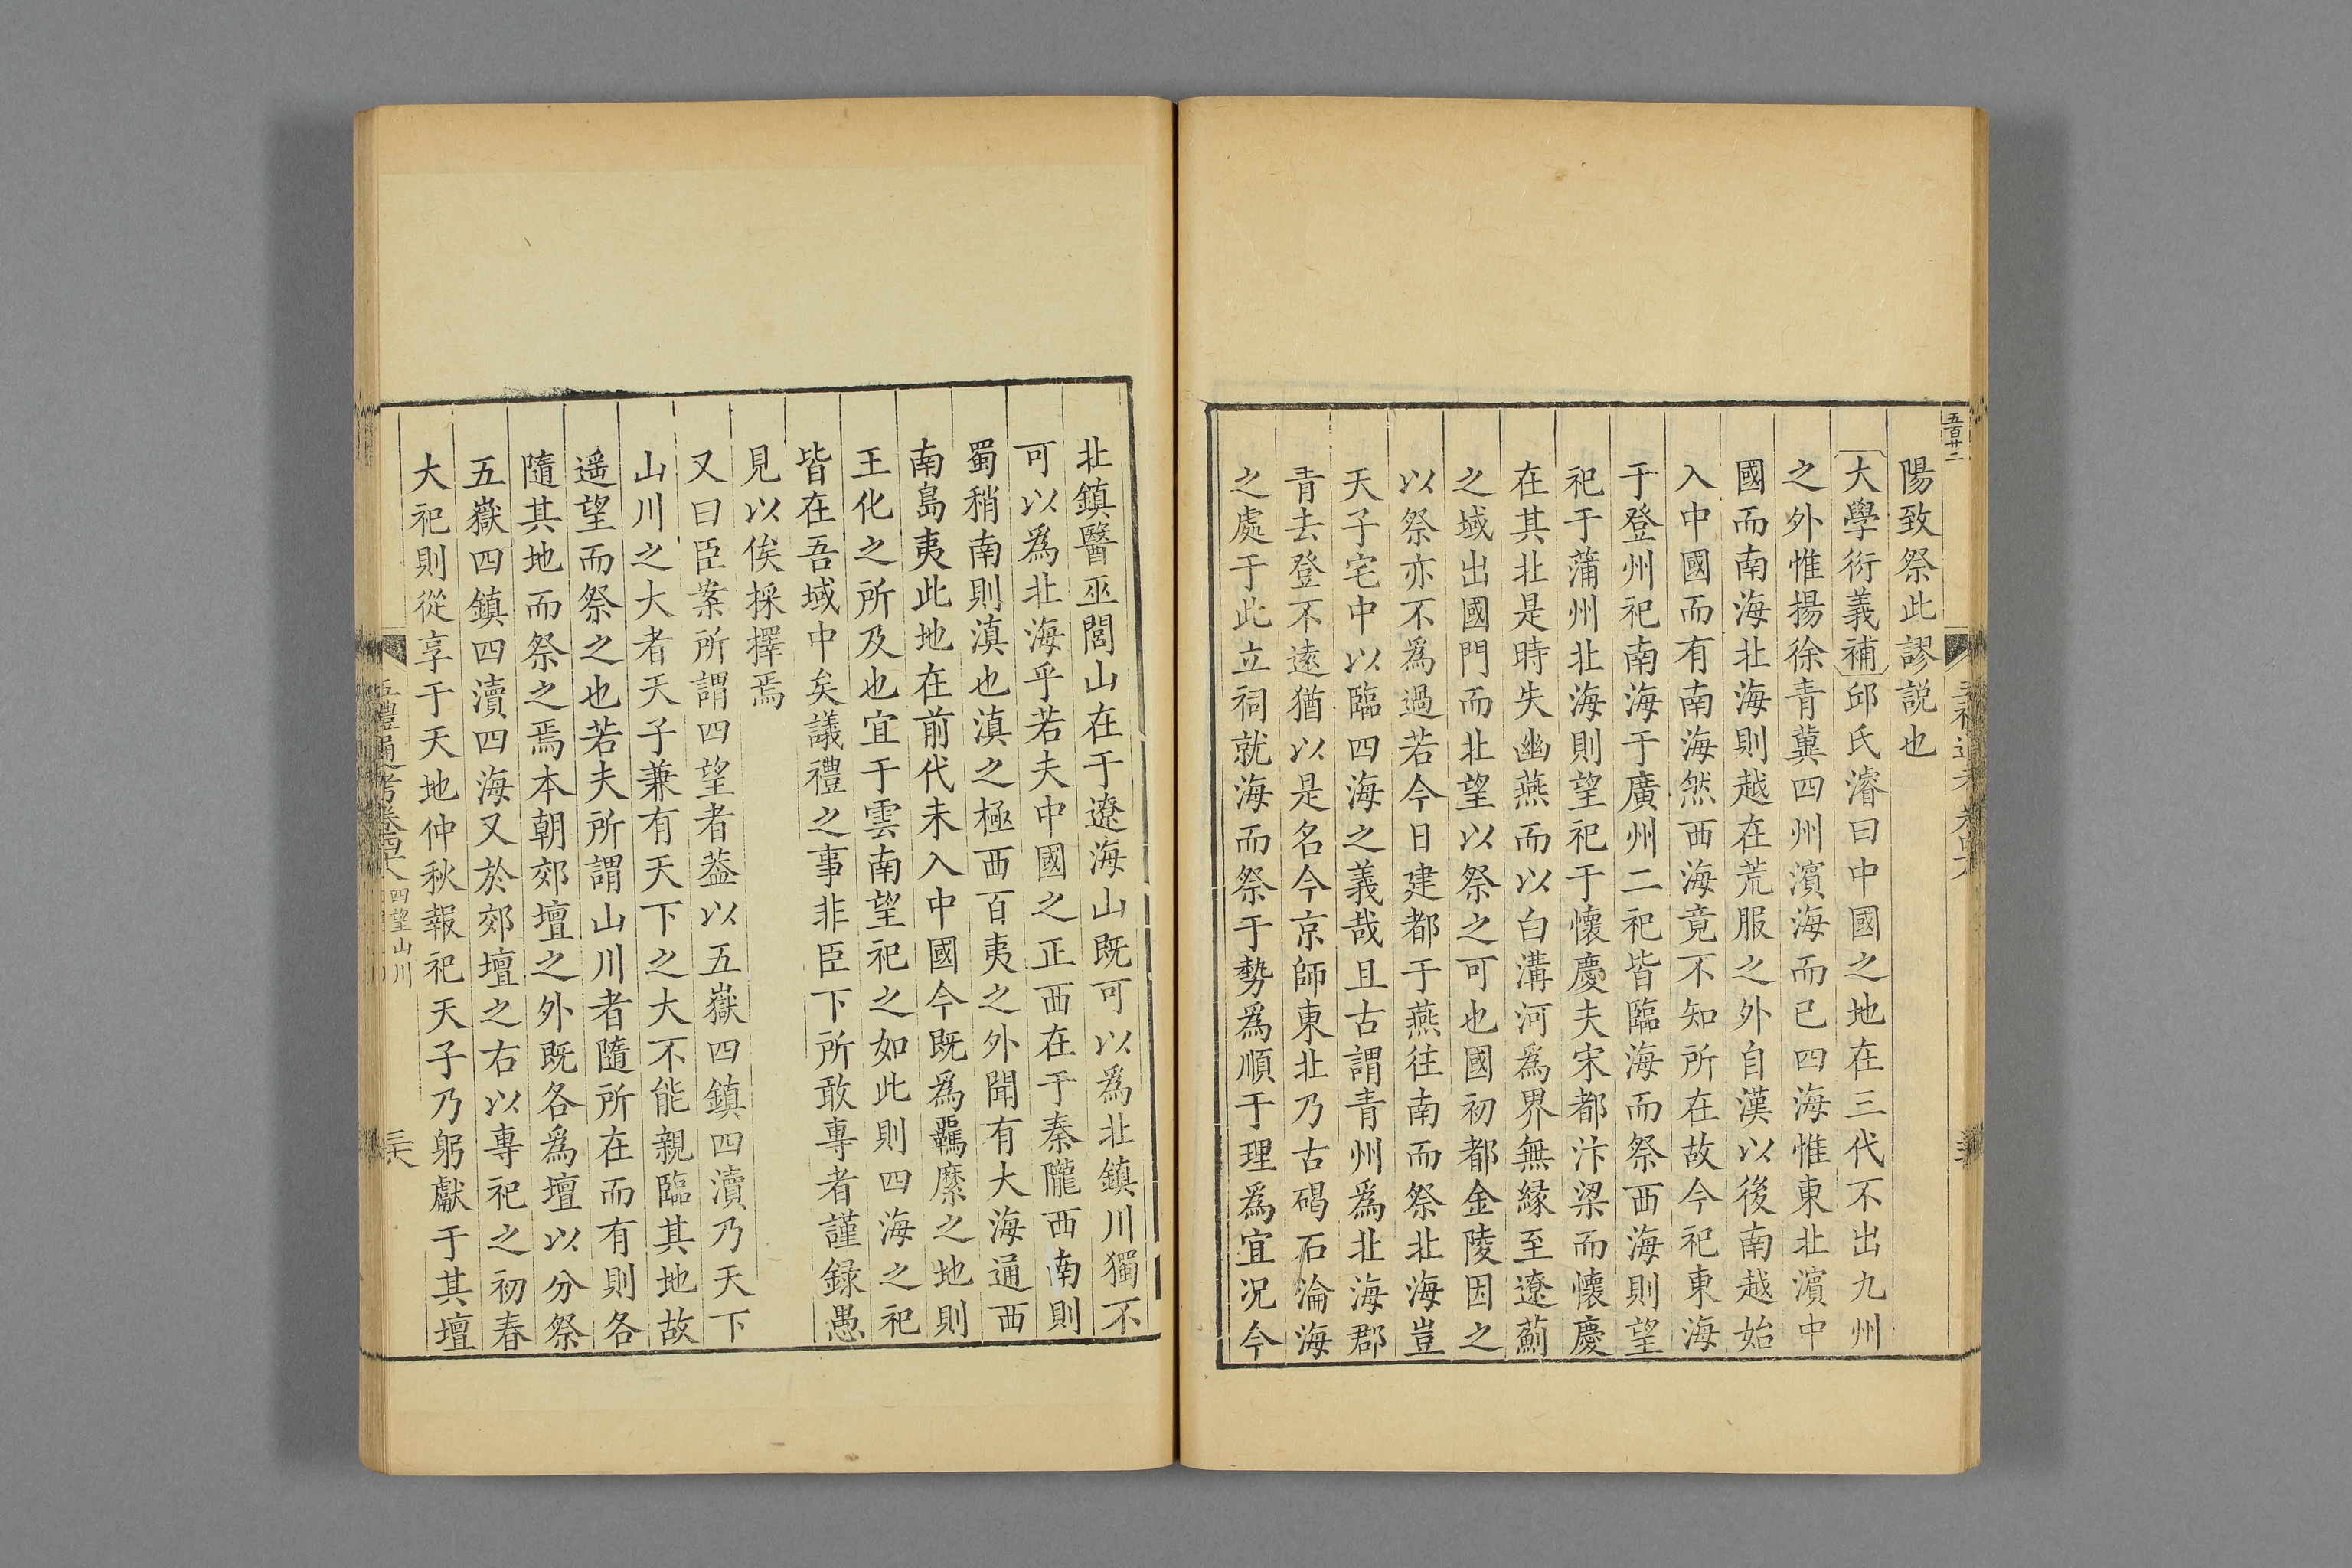 五百廿二
陽致祭此謬説也
大學衍義補邱氏濬曰中國之地在三代不出九州
之外惟揚徐青冀四州濱海而已四海惟東北濱中
國而南海北海則越在荒服之外自漢以後南越始
入中國而有南海然西海竟不知所在故今祀東海
于登州祀南海于廣州二祀皆臨海而祭西海則望
祀于蒲州北海則望祀于懷慶夫宋都汴梁而懷慶
在其北是時失幽燕而以白溝河爲界無緣至遼薊
之域出國門而北望以祭之可也國初都金陵因之
以祭亦不爲過若今日建都于燕往南而祭北海豈
天子宅中以臨四海之義哉且古謂青州爲北海郡
青去登不遠猶以是名今京師東北乃古碣石淪海
之處于此立祠就海而祭于勢爲順于理爲宜况今
北鎮醫巫閭山在于遼海山既可以爲北鎮川獨不
可以爲北海乎若夫中國之正西在于秦隴西南則
蜀稍南則滇也滇之極西百夷之外聞有大海通西
南島夷此地在前代未入中國今既爲羈縻之地則
王化之所及也宜于雲南望祀之如此則四海之祀
皆在吾域中矣議禮之事非臣下所敢專者謹録愚
見以俟採擇焉
又曰臣案所謂四望者葢以五嶽四鎮四瀆乃天下
山川之大者天子兼有天下之大不能親臨其地故
遥望而祭之也若夫所謂山川者隨所在而有則各
隨其地而祭之焉本朝郊壇之外既各爲壇以分祭
五嶽四鎮四瀆四海又於郊壇之右以專祀之初春
大祀則從享于天地仲秋報祀天子乃躬獻于其壇
五禮通考卷四十六 四望山川